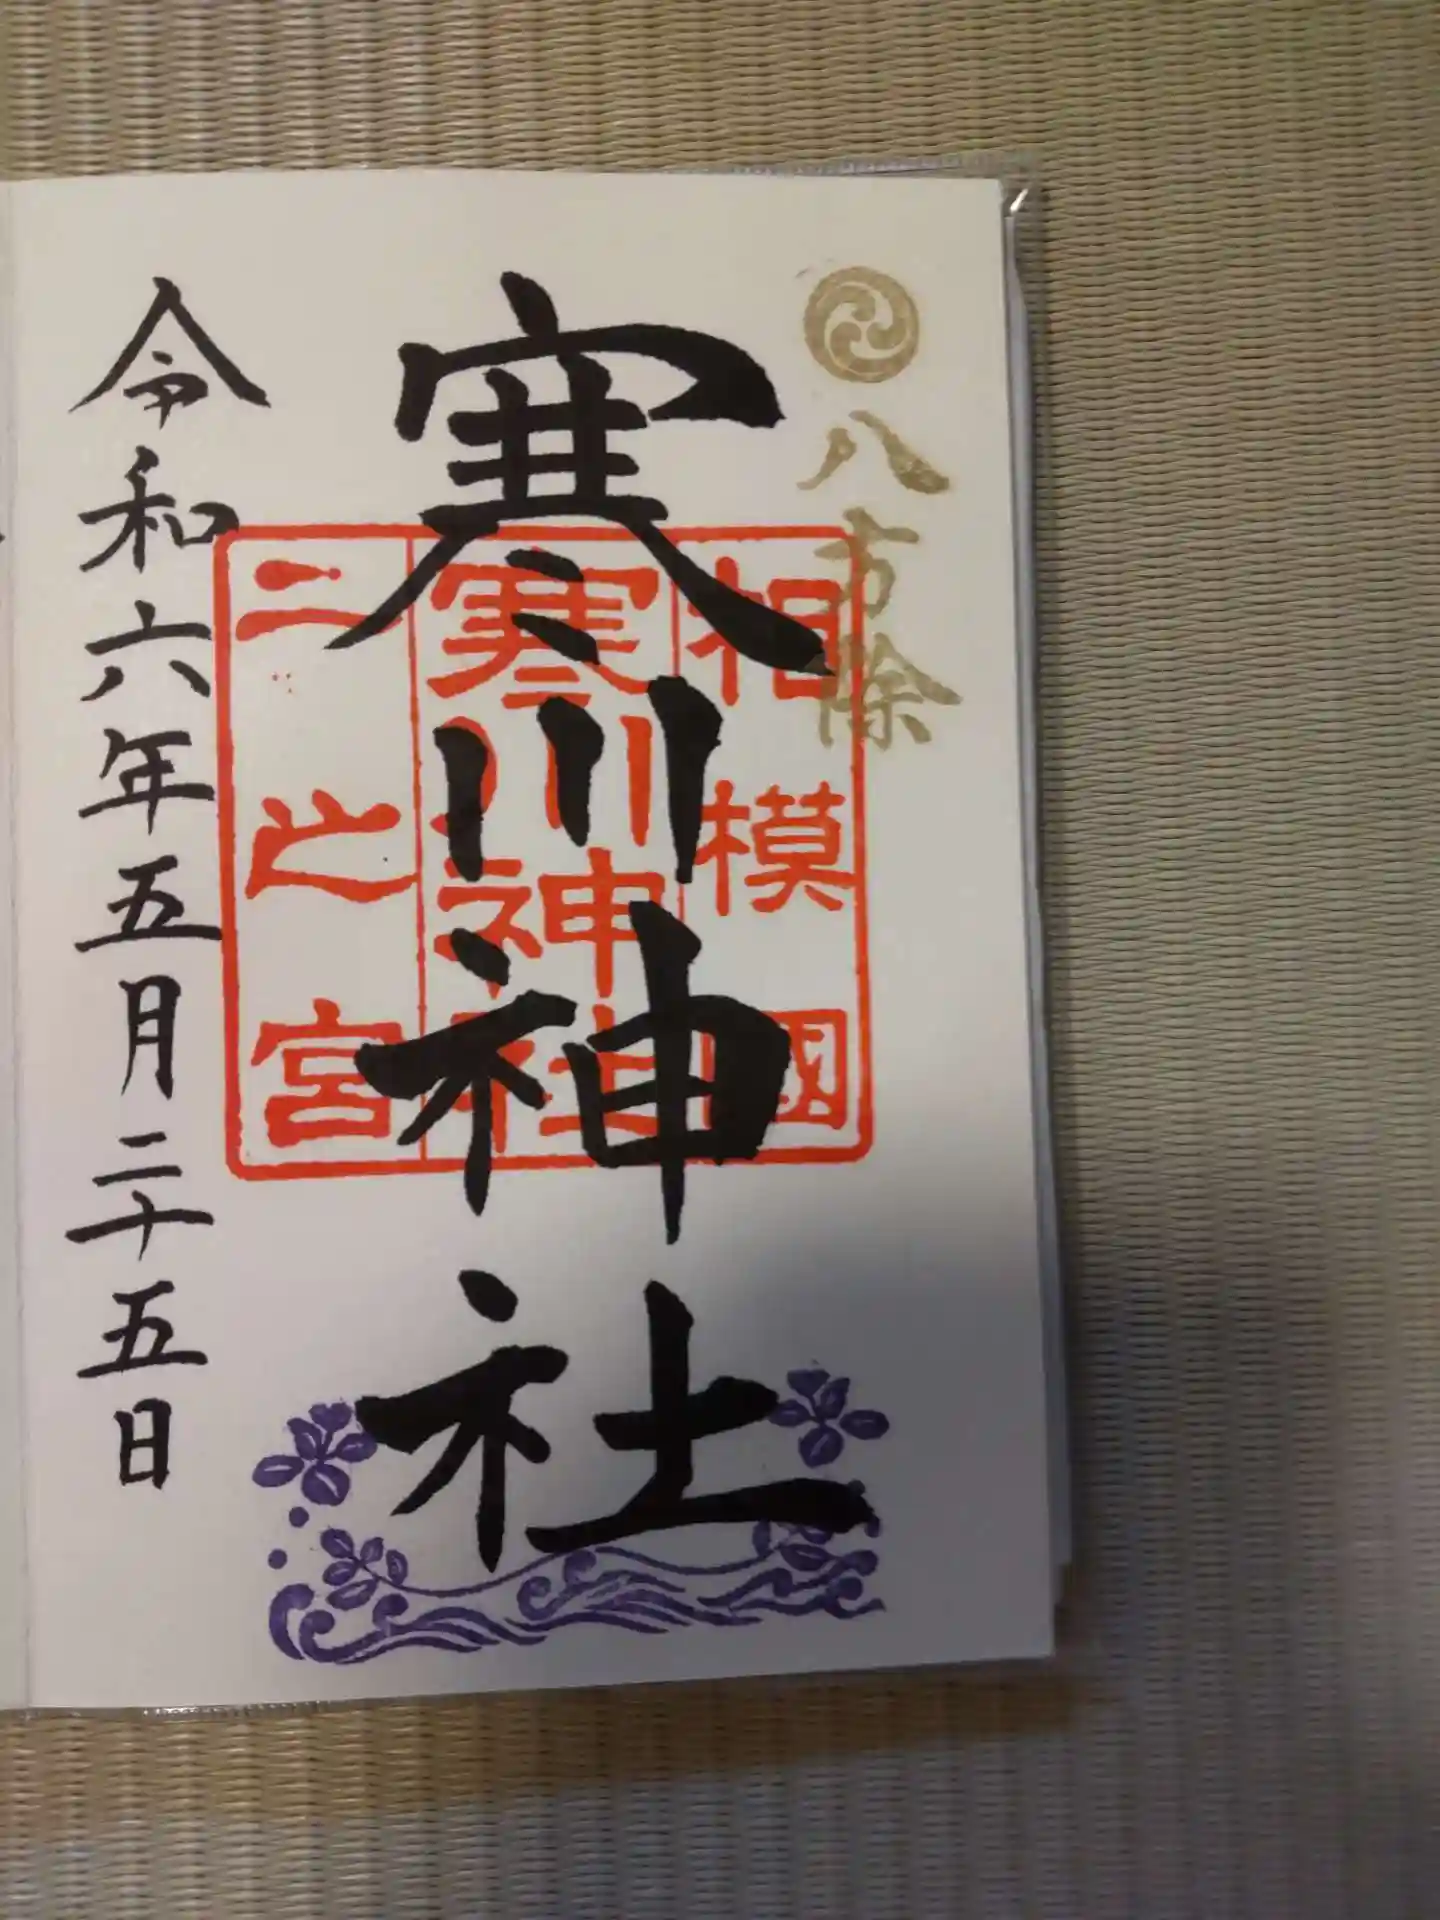 八方除
寒川神社
相模國
寒川神社
二之宮
令和六年五月二十五日